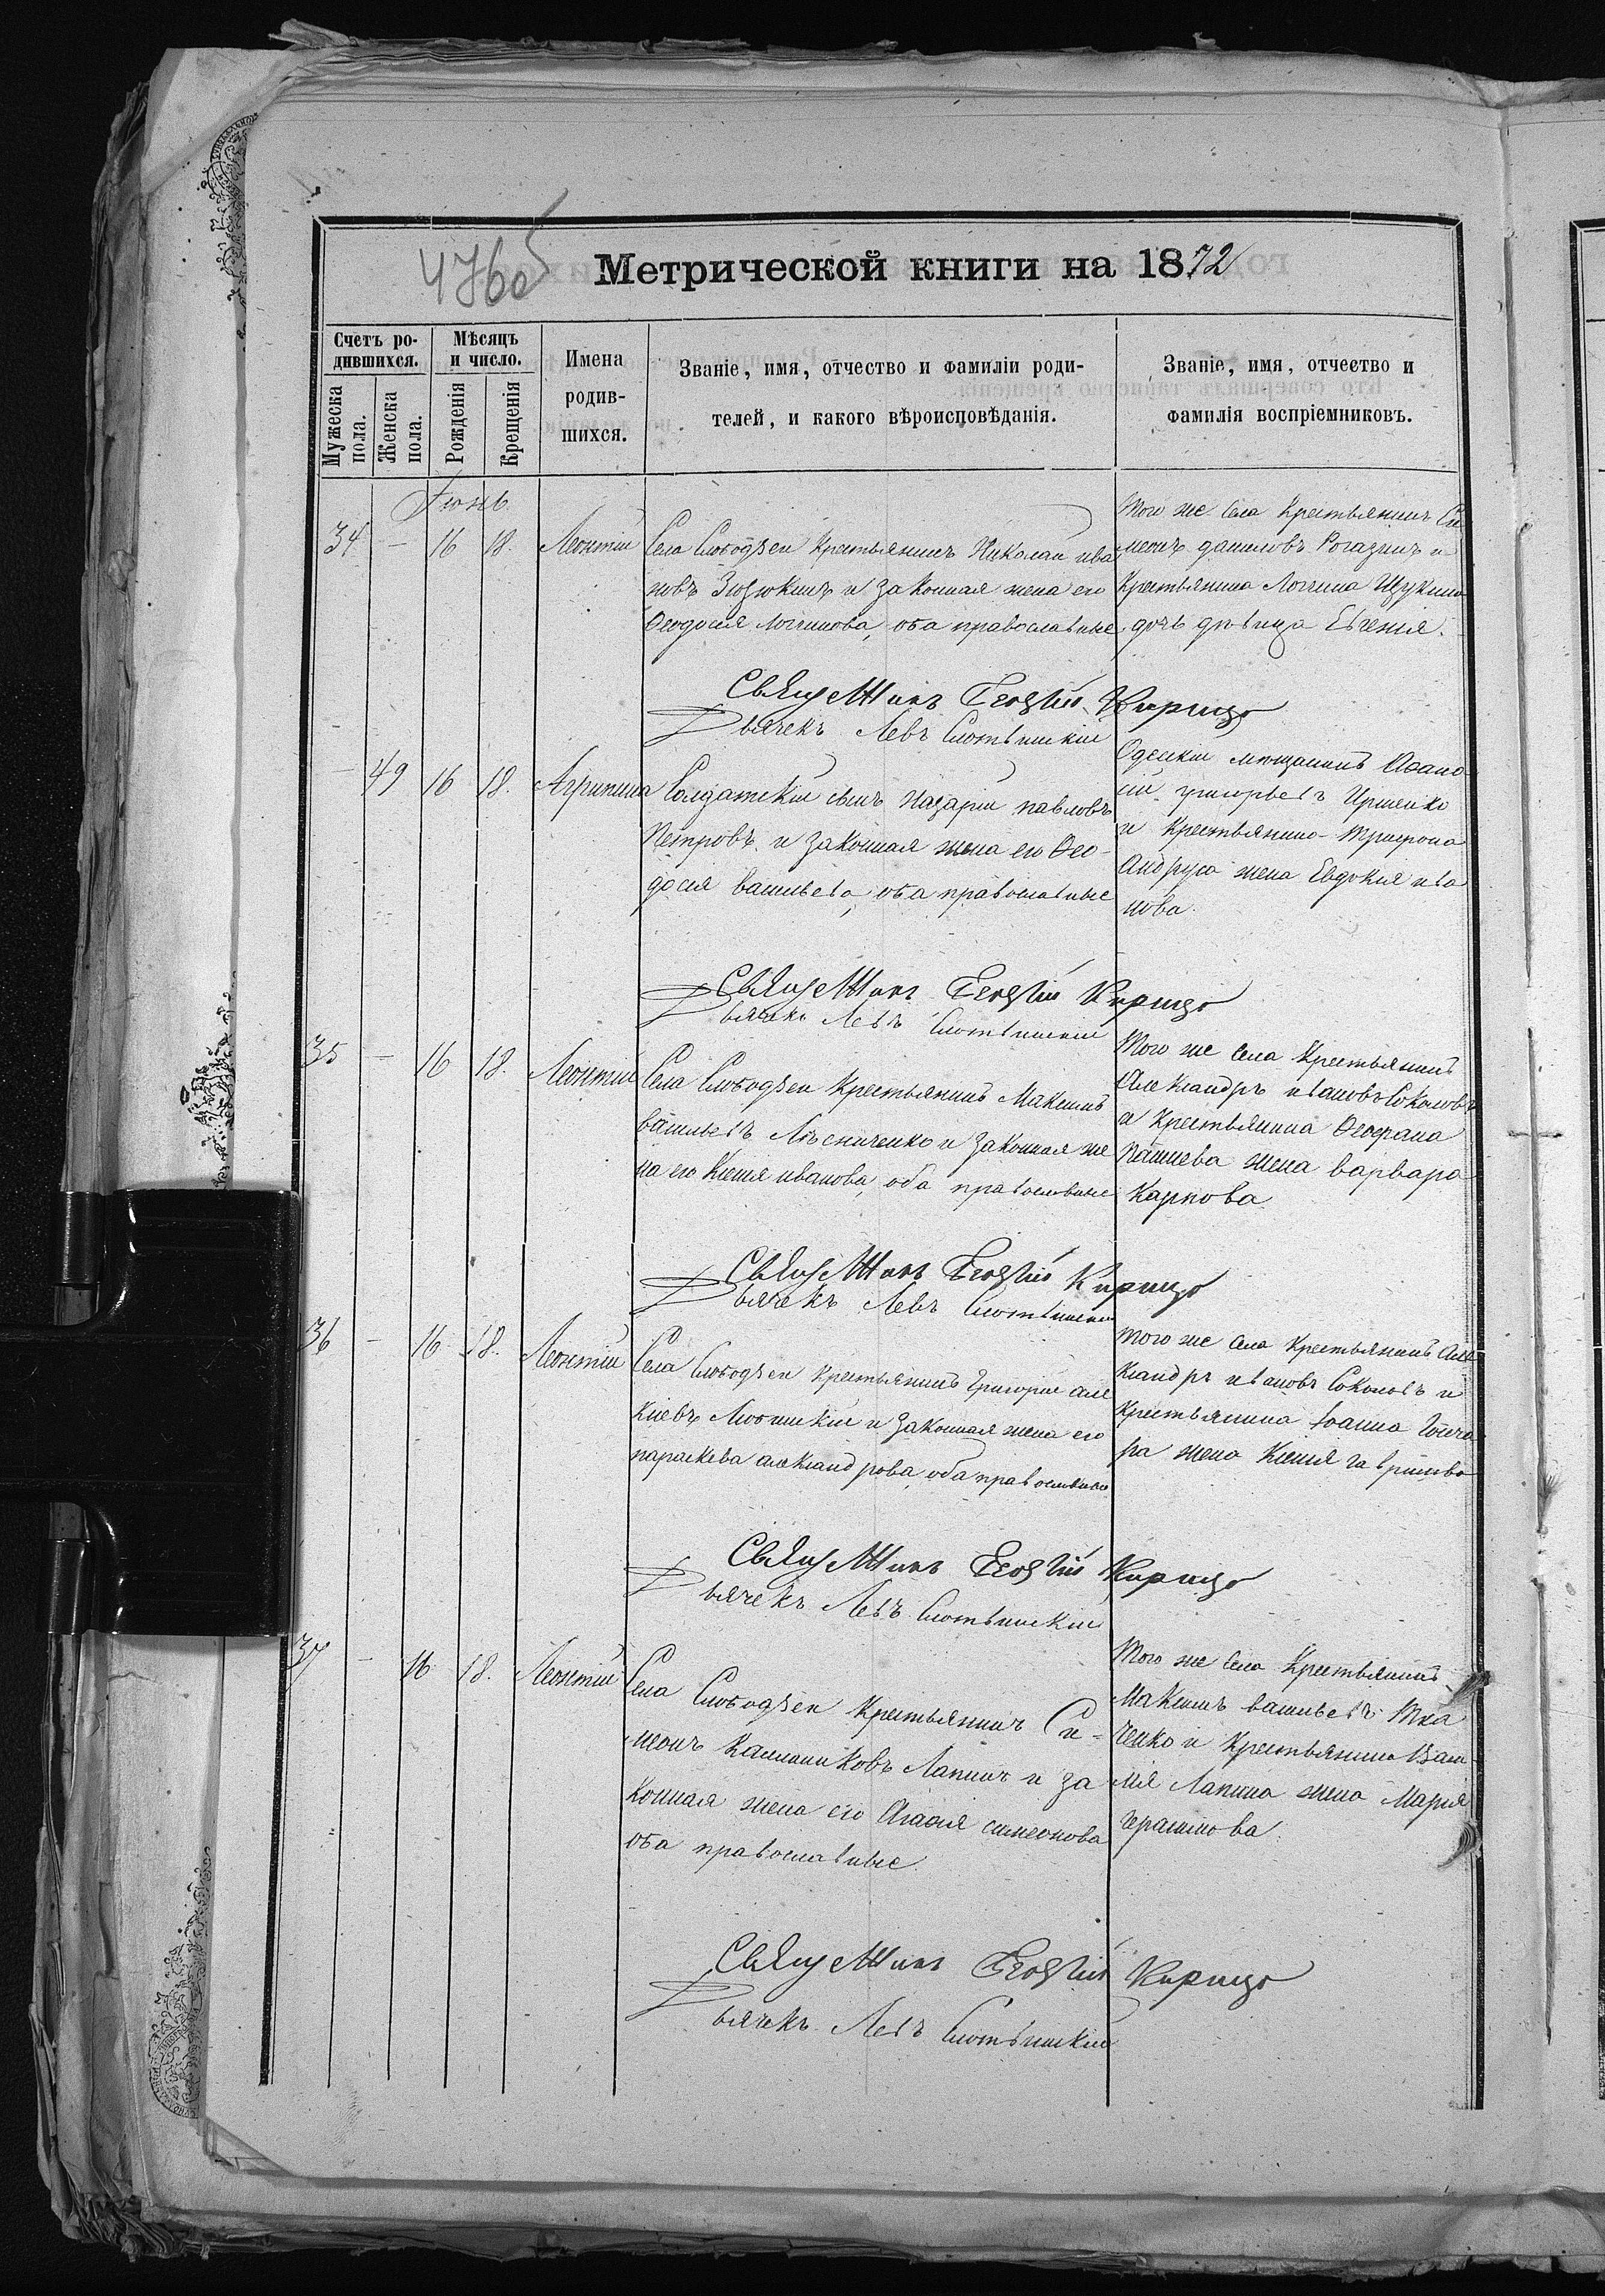 4760
Метрической книги на 1872
Счетъ ро-
дившихся.
Мѣсяцъ
и число.
Имена
родив-
шихся.
Званіе, имя, отчество и фамиліи роди-
телей, и какого вѣроисповѣданія.
Званіе, имя, отчество и
фамилія воспріемниковъ.
Мужеска
пола.
Женска
пола.
Рожденія
Крещенія
Іюнь
34 - 16 18. Леонтій
Села Слободзеи крестьянинъ Николай ива
новъ Зюзюкинъ и законная жена его
Ѳеодосія логгинова, оба православные
Того же села крестьянинъ Си
меонъ даниловъ Рогазинъ и
крестьянина Логгина Щукина
дочь дѣвица Евгенія.
Священникъ Георгій Кирица
Дьячекъ Левъ Слотвинскій
- 49 16 18. Агрипина
Солдатскій сынъ Назарій павловъ
Петровъ и законная жена его Ѳео-
досія васильева, оба православные
Одесскій мѣщанинъ Аѳана
сій григорьевъ Ирченко
и крестьянина Трифона
Андруса жена Евдокія ива
нова.
Священникъ Георгій Кирица
Дьячекъ Левъ Слотвинскій
35 - 16 18. Леонтій
Села Слободзеи крестьянинъ Максимъ
васильевъ Лѣсниченко и законная же
на его Ксенія иванова, оба православные
Того же села крестьянинъ
Александръ ивановъ Соколовъ
и крестьянина Ѳеофана
жена варвара
Карпова
Священникъ Георгій Кирица
Дьячекъ Левъ Слотвинскій
36 - 16 18. Леонтій
Села Слободзеи крестьянинъ Григорій але
ксіевъ и законная жена его
параскева александрова, оба православные
Того же села крестьянинъ Але
ксандръ ивановъ Соколовъ и
крестьянина Іоанна Гонча
ра жена Ксенія гаврилова
Священникъ Георгій Кирица
Дьячекъ Левъ Слотвинскій
37 - 16 18. Леонтій
Села Слободзеи крестьянинъ Си-
меонъ Каллиниковъ Лапинъ и за
конная жена его Агафія симеонова
оба православные.
Того же села крестьянинъ
Максимъ васильевъ Тка
ченко и крестьянина Васи-
лія Лапина жена Марія
герасимова.
Священникъ Георгій Кирица
Дьячекъ Левъ Слотвинскій